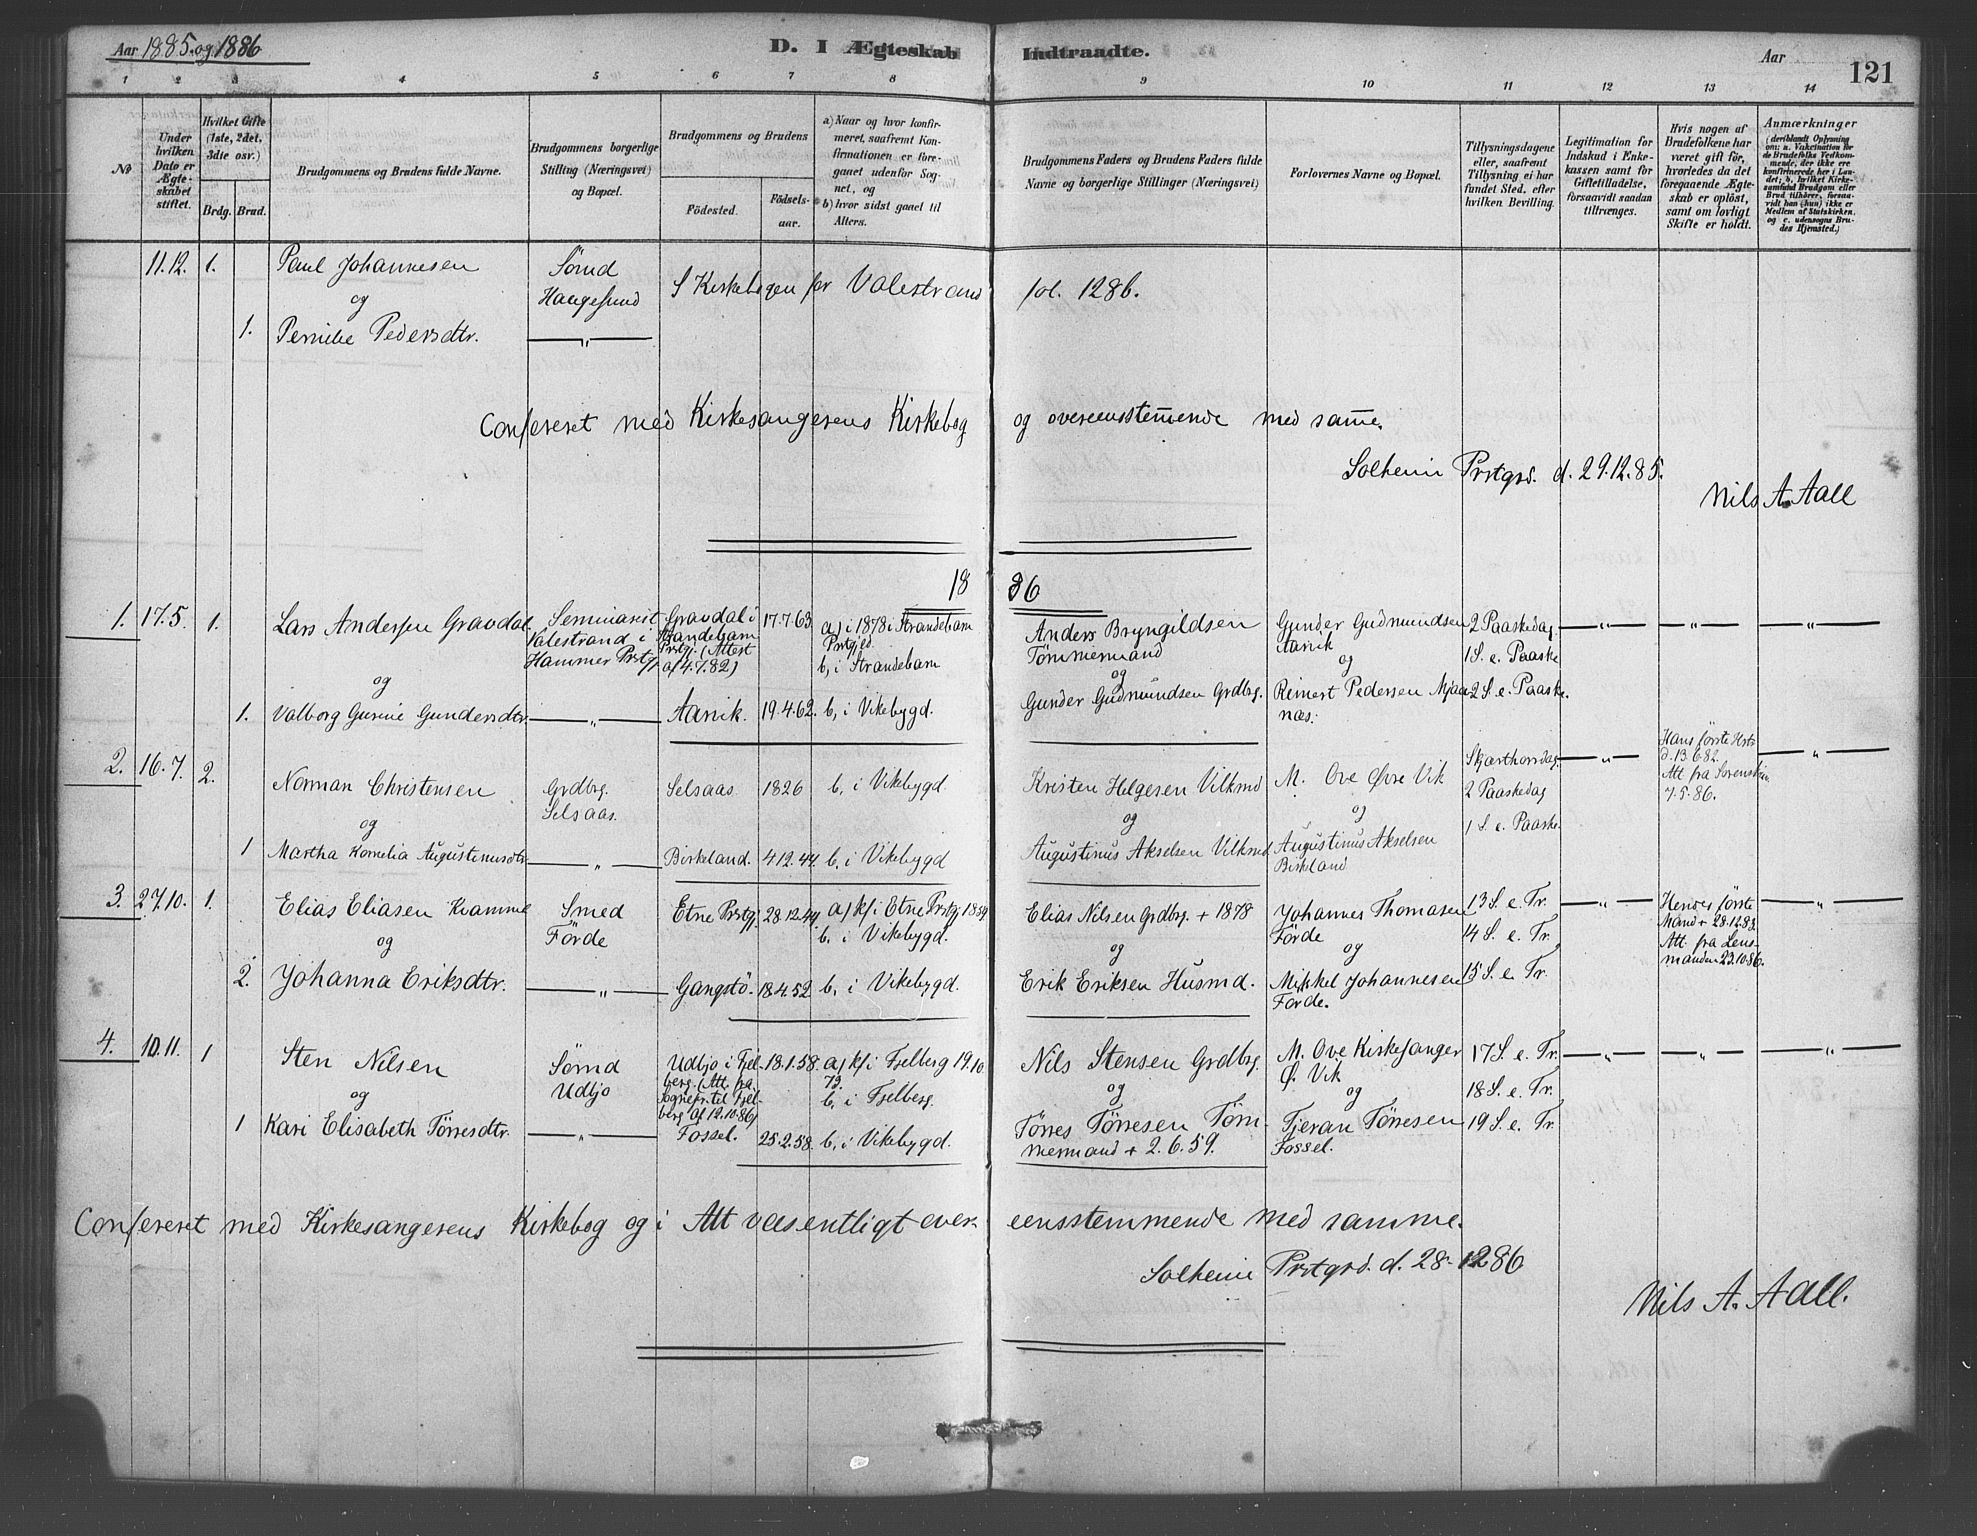 Aar 1885 og 1886
D. I Ægteskab Indtraadte.
Aar
121
1 2 3 4 5 6 7 8 9 10 11 12 13 14
No
Under hvilken Dato er Ægteskabet stiftet.
Hvilket Gifte (1ste, 2det, 3die osv.)
Brdg. Brud.
Brudgommens og Brudens fulde Navne.
Brudgommens borgerlige Stilling (Næringsvei) og Bopæl.
Brudgommens og Brudens
Födested. Födsels-aar.
a) Naar og hvor konfirmeret, saafremt Konfirmationen er foregaaet udenfor Sognet, og
b) hvor sidst gaaet til Alters.
Brudgommens Faders og Brudens Faders fulde Navne og borgerlige Stillinger (Næringsvei)
Forlovernes Navne og Bopæl.
Tillysningsdagene eller, saafremt Tillysning ei har fundet Sted, efter hvilken Bevilling.
Legitimation for Indskud i Enkekassen samt for Giftetilladelse, forsaavidt saadan tiltrænges.
Hvis nogen af Brudefolkene har været gift för, hvorledes da det foregaaende Ægteskab er oplöst, samt om lovligt Skifte er holdt.
Anmærkninger (deriblandt Oplysning om: a. Vakcination for de Brudefolks Vedkommende, der ikke ere konfirmerede her i Landet; b. hvilket Kirkesamfund Brudgom eller Brud tilhører, forsaavidt han (hun) ikke er Medlem af Statskirken, og c. udensogns Brudes Hjemsted.)
11.12. 1. Paul Johannesen Sømd Haugesund S Kirkebogen for Valestrand fol. 1286.
og
1. Pernille Pedersdtr. — „ —
Confereret med Kirkesangerens Kirkebog og overeensstem̄ende med sam̄e.
Solheim Prstgrd. d. 29.12.85.
Nils A. Aall
1886
1. 17.5. 1. Lars Andersen Gravdal. Seminarist Valestrand i Hammer Prstgj. Gravdal i Strandebarm Prstgj. (Attest af 4.7.82) 17.7.63 a) i 1878 i Strandebarm Prstgjld. b, i Strandebarm Anders Bryngildsen Tömmermand Gunder Gudmundsen Aarvik 2 Paaskedag — „ — — „ — — „ —
og og og 1 S. e. Paaske
1. Valborg Gurine Gundersdtr. — „ — Aarvik. 19.4.62. b, i Vikebygd. Gunder Gudmundsen Grdbrg. Reinert Pedersen Mjaanæs. 2 S. e. Paaske.
2. 16.7. 2. Norman Christensen Grdbrg. Selsaas. Selsaas. 1826 b, i Vikebygd Kristen Helgesen Vilkmd M. Ove Øvre Vik Skjærthorsdag. — „ — Hans første Hst. d. 13.6.82. Att. fra Sorenskriv. 7.5.86. — „ —
og og og 2 Paaskedag
1 Martha Kornelia Augustinusdtr — „ — Birkeland. 4.12.44. b, i Vikebygd Augustinus Akselsen Vilkmd. Augustinus Akselsen Birkland 1 S. e. Paaske.
3. 27.10. 1. Elias Eliasen Kramme Smed Förde Etne Prstgj. 28.12.44. a) kf i Etne Prstgj. 1859 b. i Vikebygd. Elias Nilsen Grdbrg. + 1878 Johannes Thomasen Förde 13 S. e. Tr. — „ — Hendes første Mand + 28.12.83. Att. fra Lensmanden 23.10.86. — „ —
og og og 14 S. e. Tr.
2. Johanna Eriksdtr. — „ — Gangstö. 18.4.52 b, i Vikebygd. Erik Eriksen Husmd. Mikkel Johannesen Förde. 15 S. e. Tr.
4. 10.11. 1 Sten Nilsen Sømd Udbjo Udbjo i Fjelberg. (Att. fra Sognepr. til Fjelberg af 12.10.86) 18.1.58. a) kf i Fjelberg 19.10 73. b, i Fjelberg. Nils Stensen Grdbrg. M. Ove Kirkesanger Ø. Vik 17 S. e. Tr. — „ — — „ — — „ —
og og og 18 S. e. Tr.
1 Kari Elisabeth Törresdtr. — „ — Fossel. 25.2.58. b, i Vikebygd. Törres Törresen Tömmermand + 2.6.59. Tjeran Törresen Fossel. 19 S. e. Tr.
Confereret med Kirkesangerens Kirkebog og i Alt væsentligt overeensstemmende med samme.
Solheim Prstgrd. d. 28-12 86
Nils A. Aall.